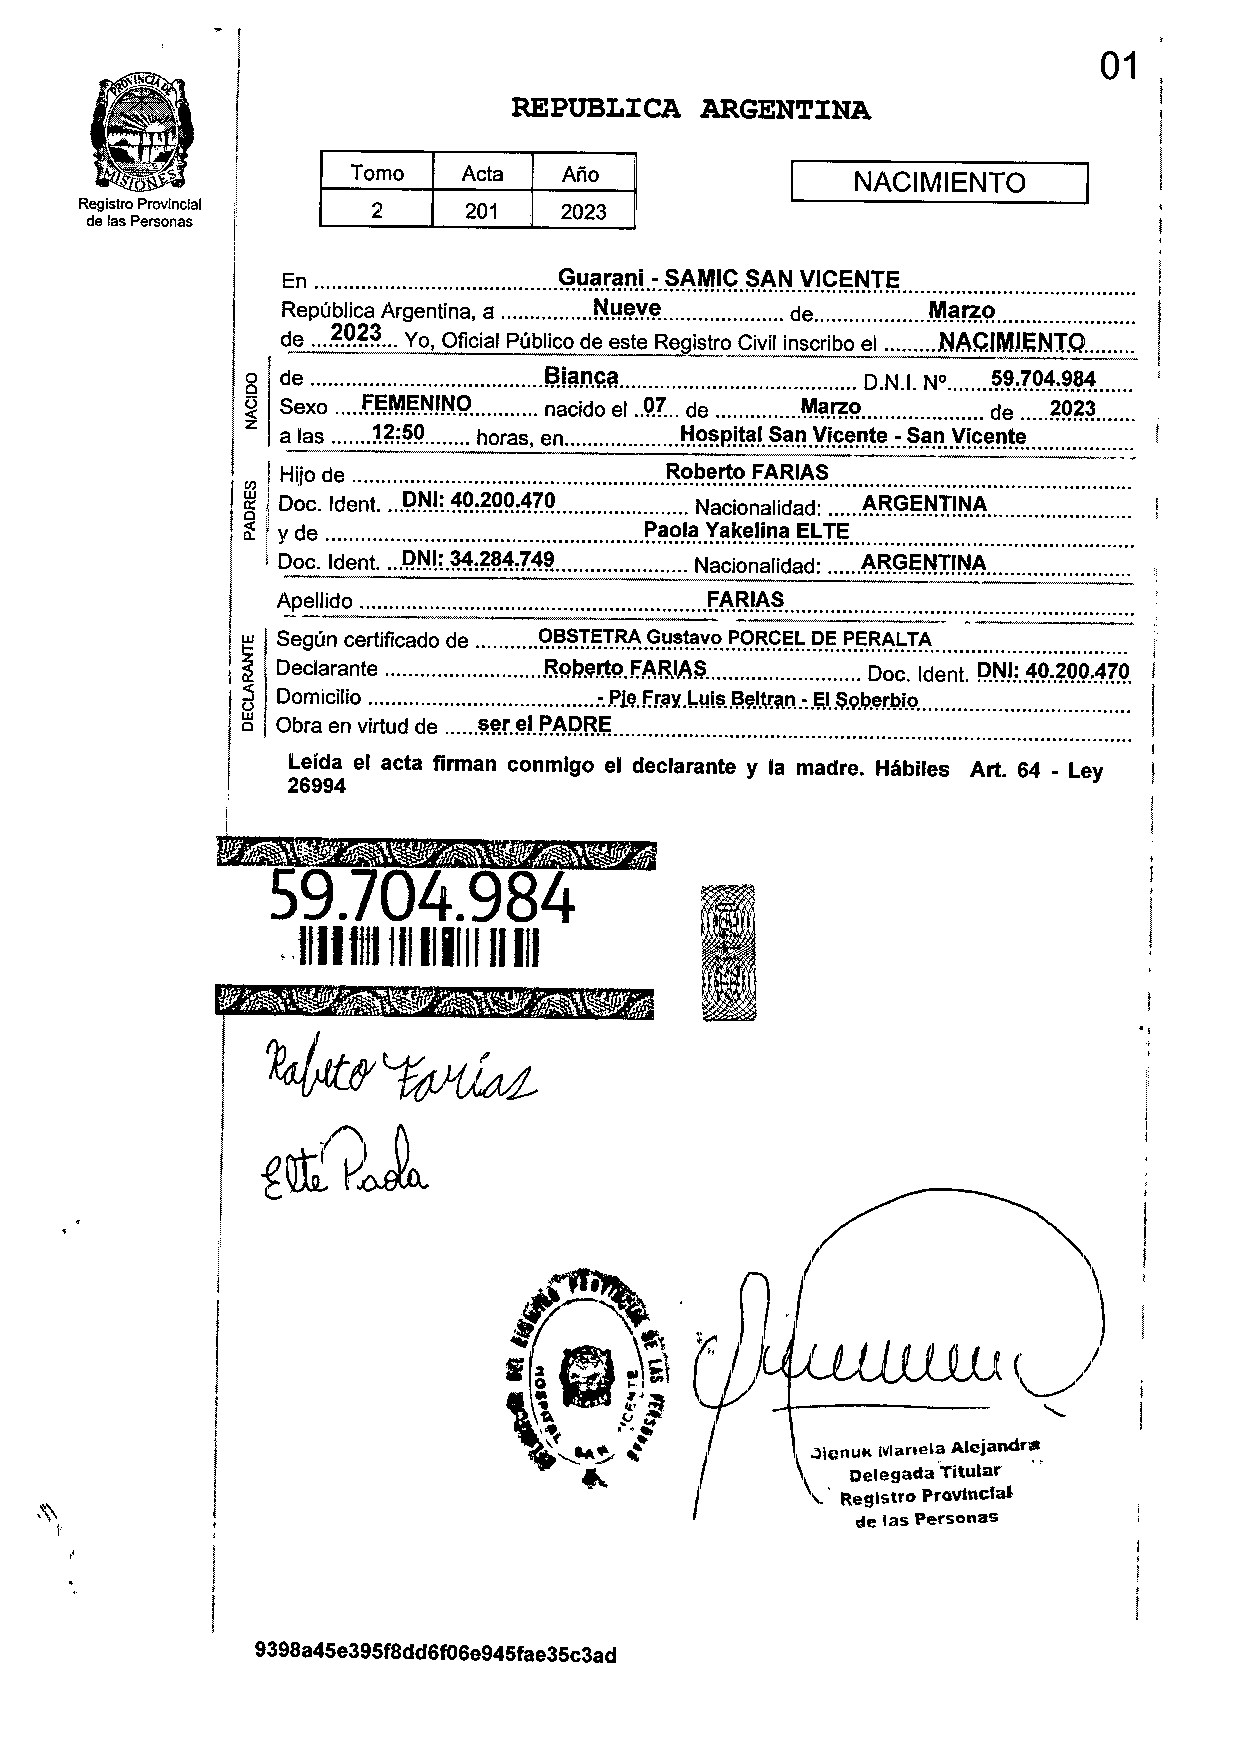 01
PROVINCIA DE
MISIONES
Registro Provincial
de las Personas
REPUBLICA ARGENTINA
Tomo Acta Año
2 201 2023
NACIMIENTO
En Guarani - SAMIC SAN VICENTE
República Argentina, a Nueve de Marzo
de 2023 Yo, Oficial Público de este Registro Civil inscribo el NACIMIENTO
NACIDO
de Bianca D.N.I. Nº 59.704.984
Sexo FEMENINO nacido el 07 de Marzo de 2023
a las 12:50 horas, en Hospital San Vicente - San Vicente
PADRES
Hijo de Roberto FARIAS
Doc. Ident. DNI: 40.200.470 Nacionalidad: ARGENTINA
y de Paola Yakelina ELTE
Doc. Ident. DNI: 34.284.749 Nacionalidad: ARGENTINA
Apellido FARIAS
DECLARANTE
Según certificado de OBSTETRA Gustavo PORCEL DE PERALTA
Declarante Roberto FARIAS Doc. Ident. DNI: 40.200.470
Domicilio - Pje Fray Luis Beltran - El Soberbio
Obra en virtud de ser el PADRE
Leída el acta firman conmigo el declarante y la madre. Hábiles Art. 64 - Ley
26994
59.704.984
Roberto Farías
Elte Paola
PROVINCIAL DE LAS PERSONAS
HOSPITAL SAN VICENTE
Mariela Alejandra
Delegada Titular
Registro Provincial
de las Personas
9398a45e395f8dd6f06e945fae35c3ad